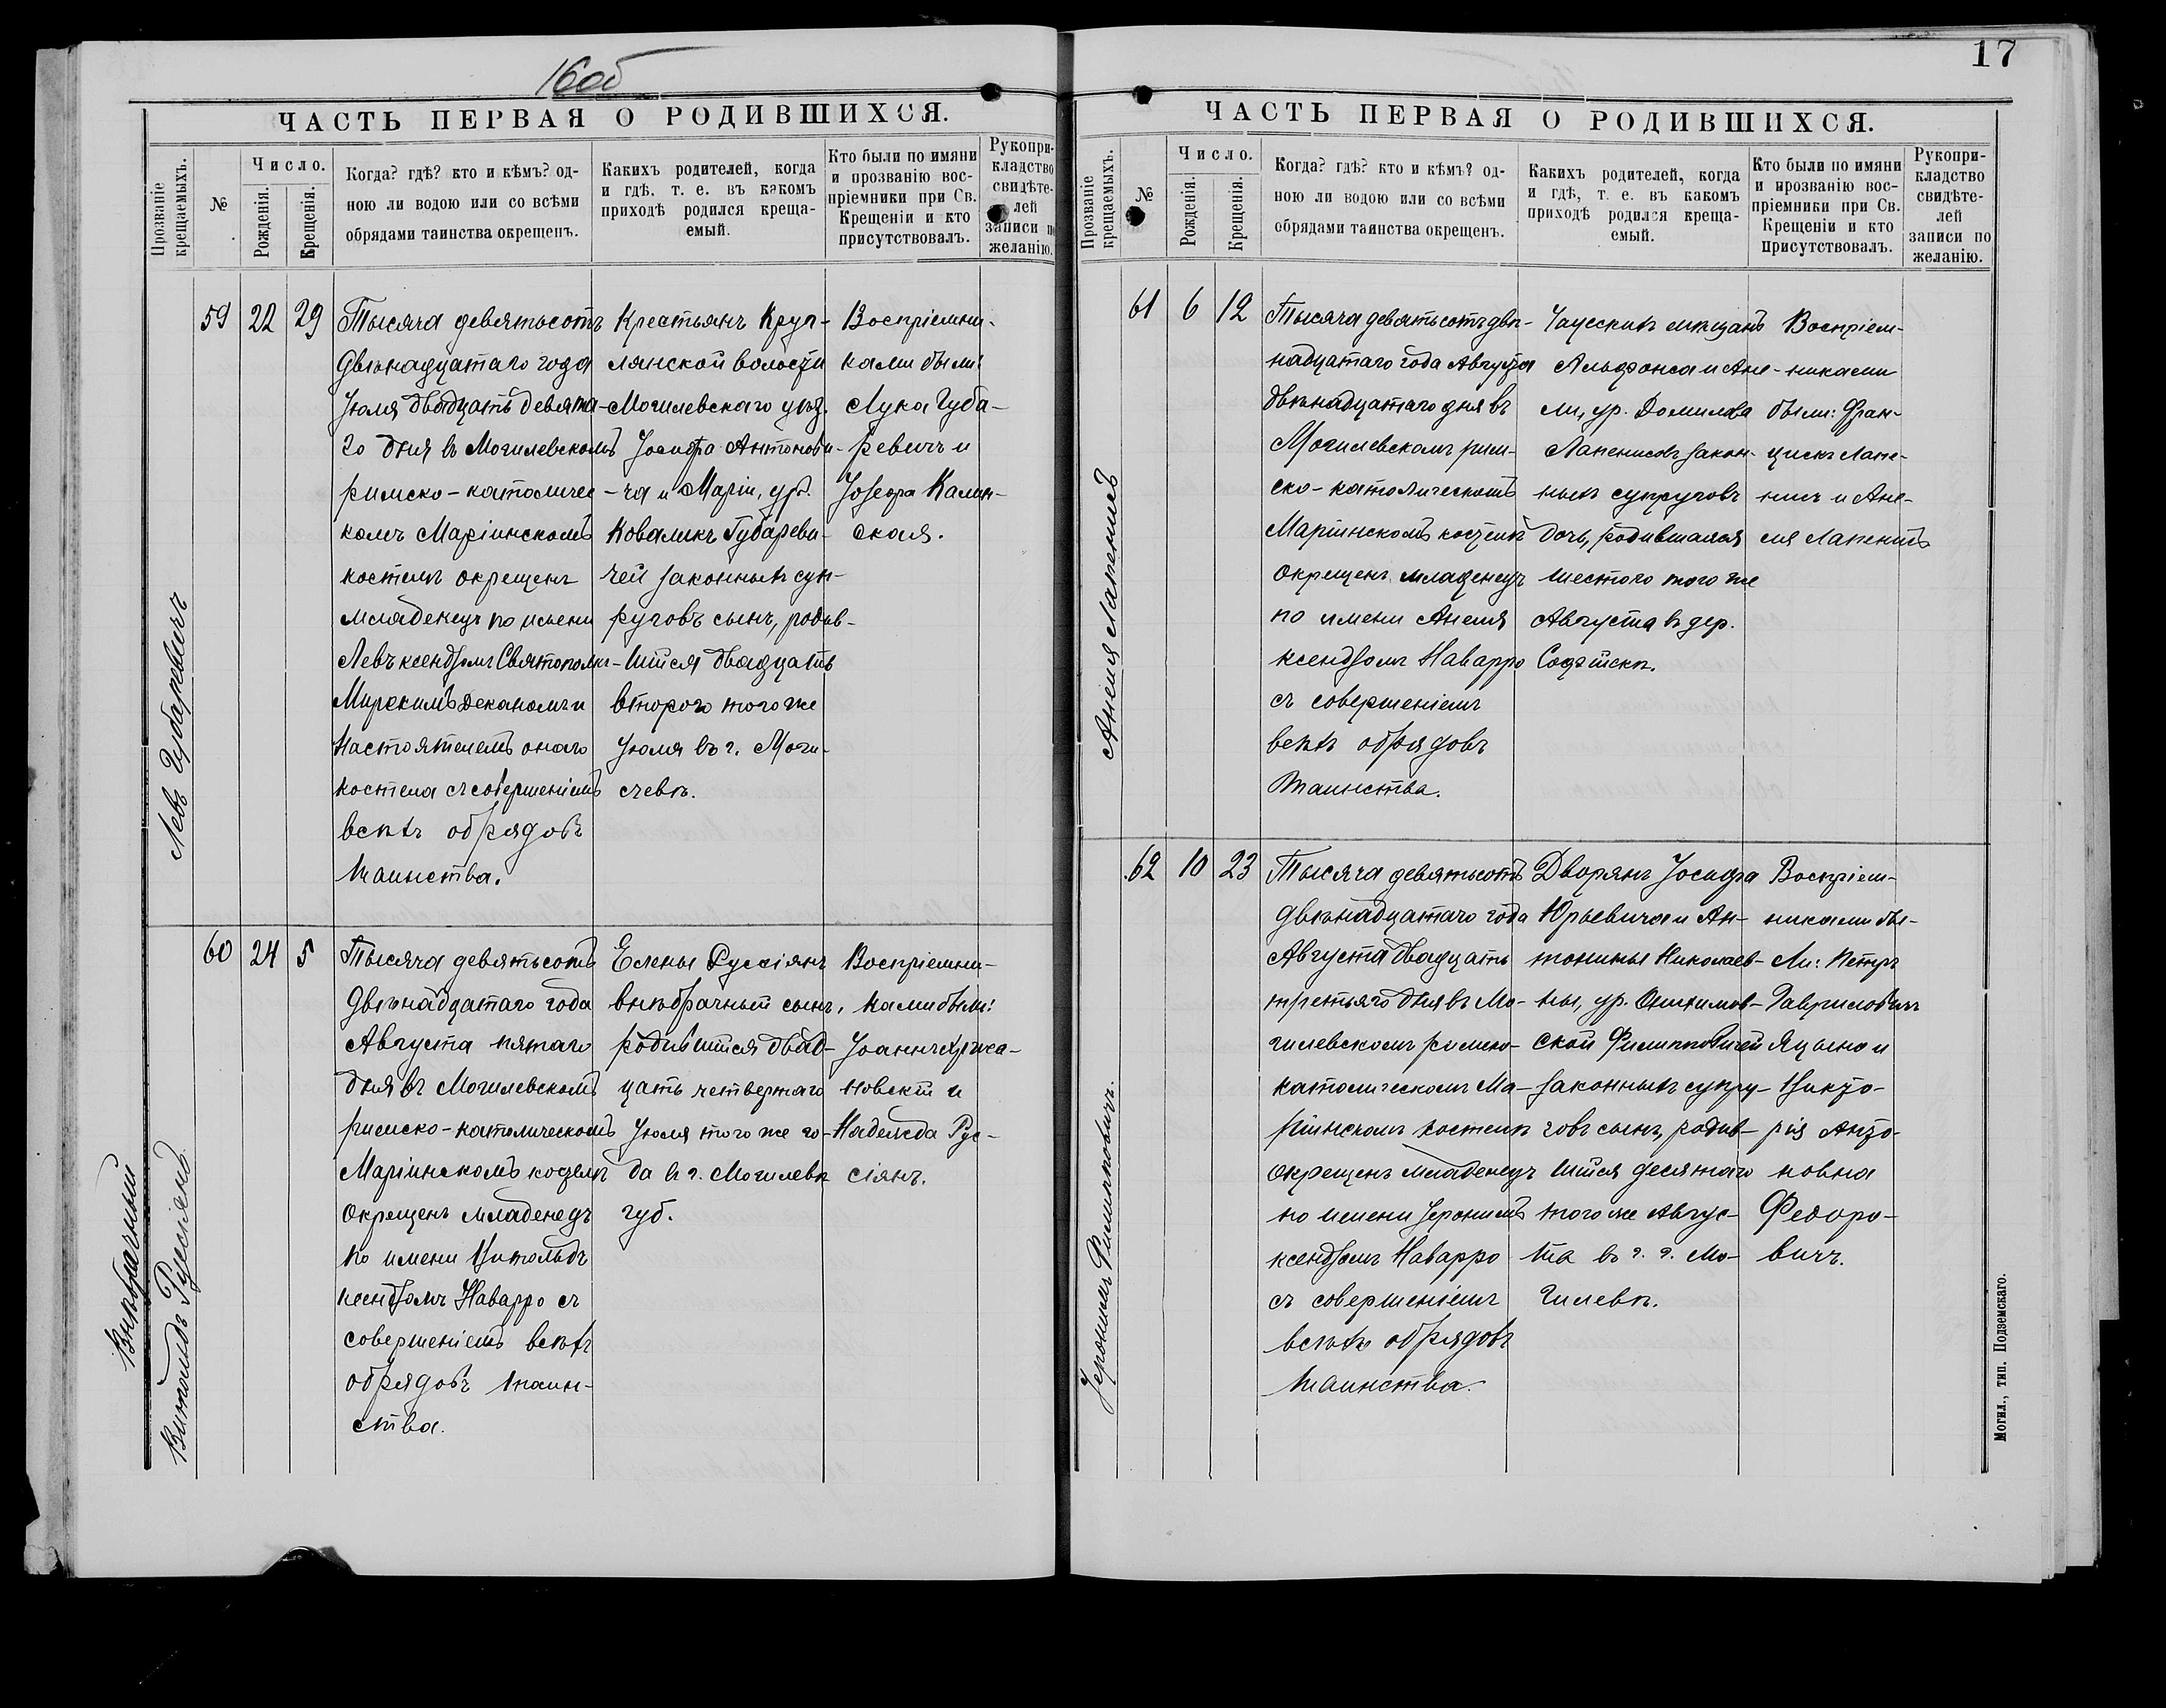 16об
ЧАСТЬ ПЕРВАЯ О РОДИВШИХСЯ.
Прозваніе крещаемыхъ.
№
Число.
Рожденія.
Крещенія.
Когда? гдѣ? кто и кѣмъ? од-
ною ли водою или со всѣми
обрядами таинства окрещенъ.
Какихъ родителей, когда
и гдѣ. т. е. въ какомъ
приходѣ родился креща-
емый.
Кто были по имяни
и прозванію вос-
пріемники при Св.
Крещеніи и кто
присутствовалъ.
Рукопри-
кладство
свидѣте-
лей
записи по
желанію.
Левъ Губаревичъ
59
22
29
Тысяча девятьсотъ
двѣнадцатаго года
Іюля двадцать девята-
го дня въ Могилевскомъ
римско-католичес-
комъ Маріинскомъ
костелѣ окрещенъ
младенецъ по имени
Левъ ксендзомъ Святополкъ-
Мирскимъ деканомъ и
настоятелемъ онаго
костела съ совершеніемъ
всѣхъ обрядовъ
таинства.
Крестьянъ Круг-
лянской волости
Могилевскаго уѣз.
Іосифа Антонови-
ча и Маріи, ур.
Коваликъ Губареви-
чей законныхъ суп-
руговъ сынъ, родив-
шійся двадцать
второго того же
Іюля въ г. Моги-
левѣ.
Воспріемни-
ками были:
Лука Губа-
ревичъ и
Іозефа Калин-
ская.
Внѣбрачный
Витольдъ Руссіянъ
60
24
5
Тысяча девятьсотъ
двѣнадцатаго года
Августа пятаго
дня въ Могилевскомъ
римско-католическомъ
Маріинскомъ костелѣ
окрещенъ младенецъ
по имени Витольдъ
ксендзомъ Наварро съ
совершеніемъ всѣхъ
обрядовъ таин-
ства.
Елены Руссіянъ
внѣбрачный сынъ,
родившійся двад-
цать четвертаго
Іюля того же го-
да въ г. Могилевѣ
губ.
Воспріемни-
ками были:
Іоаннъ Хржа-
новскій и
Надежда Рус-
сіянъ.
17
ЧАСТЬ ПЕРВАЯ О РОДИВШИХСЯ.
Прозваніе крещаемыхъ.
№
Число.
Рожденія.
Крещенія.
Когда? гдѣ? кто и кѣмъ? од-
ною ли водою или со всѣми
обрядами таинства окрещенъ.
Какихъ родителей, когда
и гдѣ, т. е. въ какомъ
приходѣ родился креща-
емый.
Кто были по имяни
и прозванію вос-
пріемники при Св.
Крещеніи и кто
присутствовалъ.
Рукопри-
кладство
свидѣте-
лей
записи по
желанію.
Анеля Лапенисъ
61
6
12
Тысяча девятьсотъ двѣ-
надцатаго года Августа
двѣнадцатаго дня въ
Могилевскомъ рим-
ско-католическомъ
Маріинскомъ костелѣ
окрещенъ младенецъ
по имени Анеля
ксендзомъ Наварро
съ совершеніемъ
всѣхъ обрядовъ
таинства.
Чаусскихъ мѣщанъ
Альфонса и Ане-
ли, ур.
Лапенисовъ закон-
ныхъ супруговъ
дочь, родившаяся
шестого того же
Августа въ дер.
Воспріем-
никами
были: Фран-
цискъ Лапе-
нисъ и Ане-
ля Лапенисъ
Іеронимъ Филипповичъ.
62
10
23
Тысяча девятьсотъ
двѣнадцатаго года
Августа двадцать
третьяго дня въ Мо-
гилевскомъ римско-
католическомъ Ма-
ріинскомъ костелѣ
окрещенъ младенецъ
по имени Іеронимъ
ксендзомъ Наварро
съ совершеніемъ
всѣхъ обрядовъ
таинства.
Дворянъ Іосифа
Юрьевича и Ан-
тонины Николаев-
ны, ур.
ской Филипповичей
законныхъ супру-
говъ сынъ, родив-
шійся десятаго
того же Авгус-
та въ г. г. Мо-
гилевѣ.
Воспріем-
никами бы-
ли: Петръ
Гавриловичъ
Яцына и
Викто-
рія Анто-
новна
Федоро-
вичъ.
Могил., тип. Подземскаго.